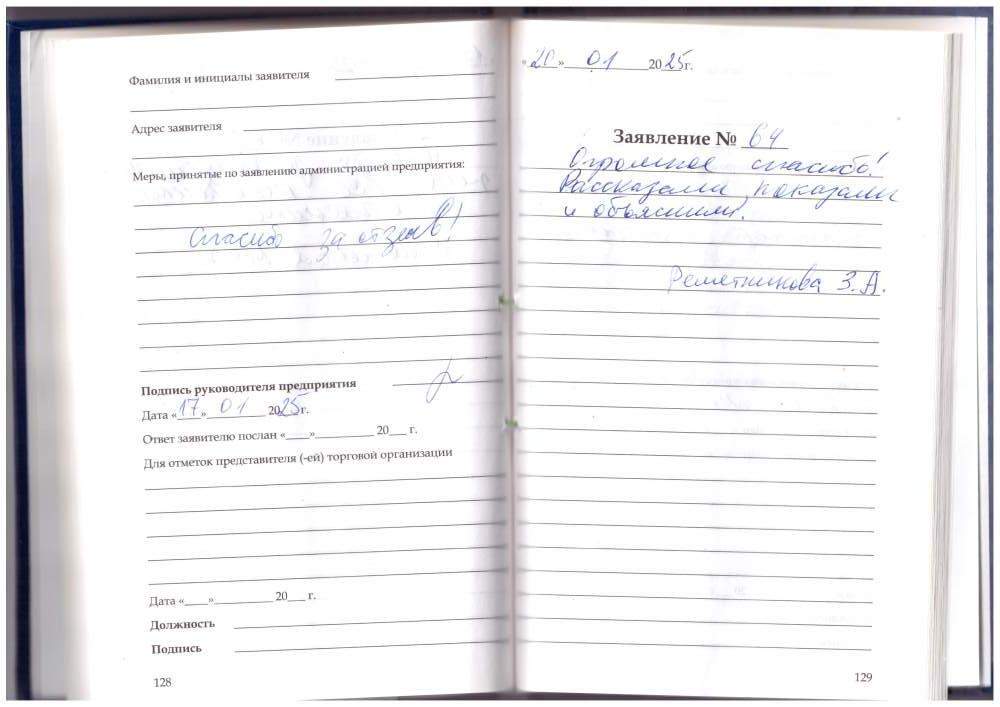 Фамилия и инициалы заявителя
Адрес заявителя
Меры, принятые по заявлению администрацией предприятия:
Спасибо за отзыв!
Подпись руководителя предприятия
Дата «17» 01 2025г.
Ответ заявителю послан «____»__________ 20___ г.
Для отметок представителя (-ей) торговой организации
Дата «____»__________ 20___ г.
Должность
Подпись
128
«20» 01 2025г.
Заявление № 64
Огромное спасибо!
Рассказали, показали
и объяснили.
З.А.
129